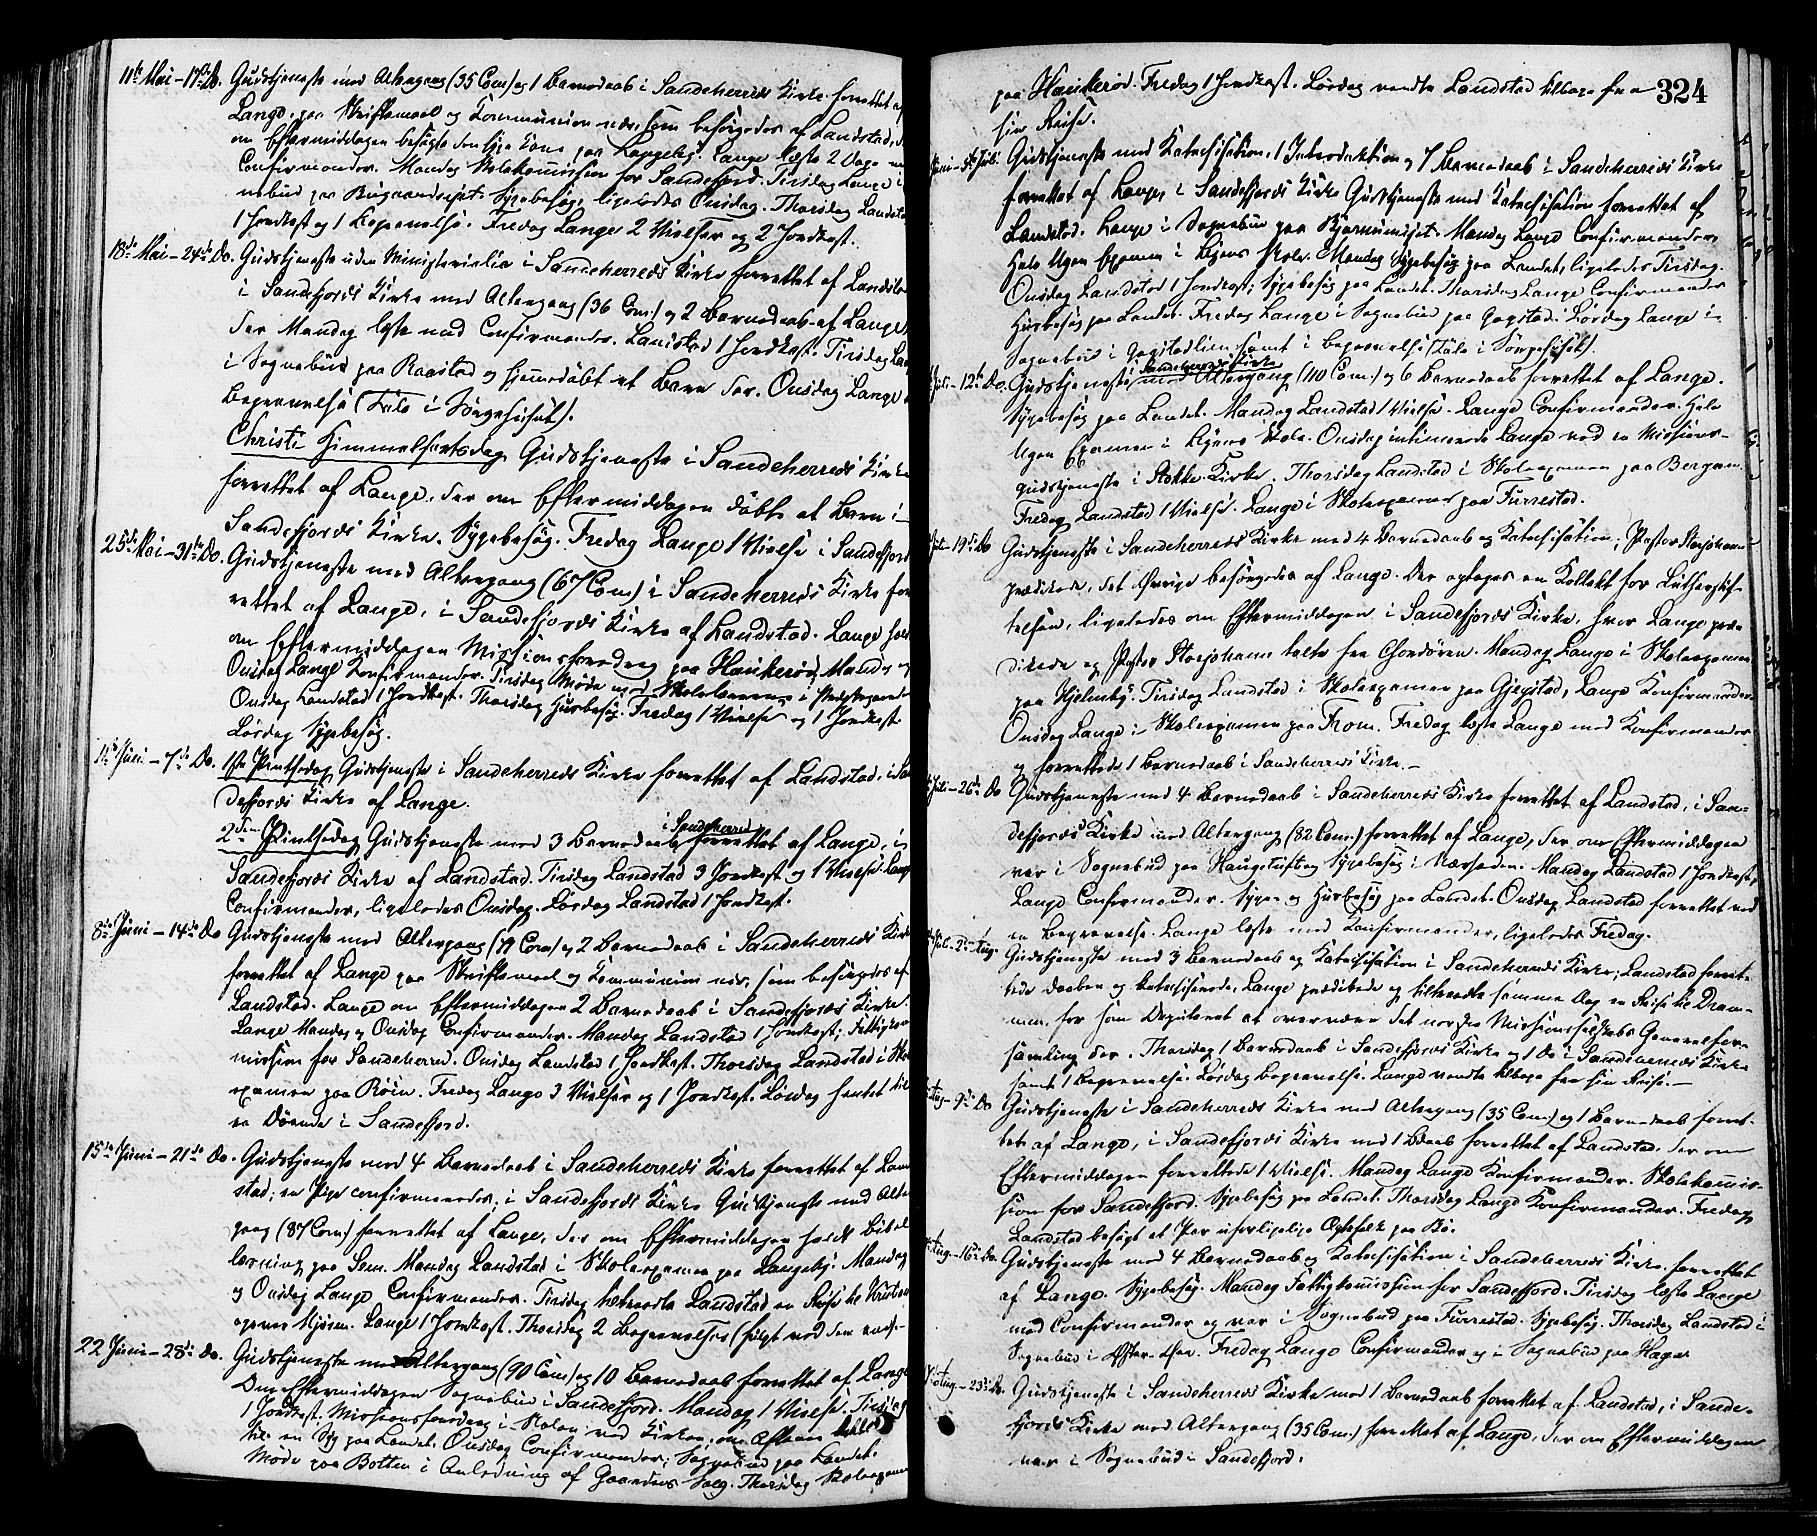 11te Mai – 17de Do. Gudstjeneste med Altergang (35 Com) og 1 Barnedaab i Sandeherreds Kirke forrettet af
Lange, paa Skriftemaal og Communion nær, som besørgedes af Landstad,
om Eftermiddagen besøgte den syge Kone paa Lange læste 2 Dage
Confirmander. Mandag Skolekomission for Sandefjord. Tirsdag Lange i
nebud paa Sygebesøg, ligeledes Onsdag. Thorsdag Landstad
1 Jordkast og 1 Begravelse. Fredag Lange 2 Vielser og 2 Jordkast.
18de Mai – 24de Do. Gudstjeneste uden Ministerialia i Sandeherreds Kirke forrettet af Landsta
i Sandefjords Kirke med Altergang (36 Com) og 2 Barnedaab af Lange
der Mandag læste med Confirmander. Landstad 1 Jordkast. Tirsdag Lan
i Sognebud paa Raastad og hjemmedøbt et Barn der. Onsdag Lange
Begravelse (Tale i Sørgehuset).
Christi Himmelfartsdag Gudstjeneste i Sandeherreds Kirke
forrettet af Lange, der om Eftermiddagen døbte et Barn i
Sandefjords Kirke. Sygebesøg. Fredag Lange 1 Vielse i Sandefjord
25de Mai – 31te Do. Gudstjeneste med Altergang (67 Com) i Sandeherreds Kirke for
rettet af Lange, i Sandefjords Kirke af Landstad. Lange holdt
om Eftermiddagen Missionsforedrag paa Haukerød. Mandag og
Onsdag Lange Konfirmander. Tirsdag Møde med Skolelærerne i
Onsdag Landstad 1 Jordkast. Thorsdag Husbesøg. Fredag 1 Vielse og 1 Jordkast
Lørdag Sygebesøg.
1te Juni – 7de Do. 1ste Pintsedag Gudstjeneste i Sandeherreds Kirke forrettet af Landstad, i San
defjords Kirke af Lange.
2den Pintsedag Gudstjeneste med 3 Barnedaab i Sandeherred forrettet af Lange, i
Sandefjords Kirke af Landstad. Tirsdag Landstad 3 Jordkast og 1 Vielse. Lange
Confirmander, ligeledes Onsdag. Lørdag Landstad 1 Jordkast.
8de Juni – 14de Do Gudstjeneste med Altergang (79 Com) og 2 Barnedaab i Sandeherreds Kirke
forrettet af Lange paa Skriftemaal og Communion nær, som besørgedes af
Landstad. Lange om Eftermiddagen 2 Barnedaab i Sandefjords Kirke.
Lange Mandag og Onsdag Confirmander. Mandag Landstad 1 Jordkast; Fattigkom
mission for Sandeherred. Onsdag Landstad 1 Jordkast. Thorsdag Landstad i Skole
examen paa Fredag Lange 3 Vielser og 1 Jordkast. Lørdag hentet til
en Døende i Sandefjord.
15de Juni – 21de Do. Gudstjeneste med 4 Barnedaab i Sandeherreds Kirke forrettet af Land
stad; en Pige confirmeredes; i Sandefjords Kirke Gudstjeneste med Alter
gang (87 Com) forrettet af Lange, der om Eftermiddagen holdt Bibel
læsning paa Sem. Mandag Landstad i Skoleexamen paa Langeby. Mandag
og Onsdag Lange Confirmander. Tirsdag tiltraadte Landstad en Reise til
Lange 1 Jordkast. Thorsdag 2 Begravelser (
22 Juni – 28de Do. Gudstjeneste med Altergang (90 Com) og 10 Barnedaab forrettet af Lange
Om Eftermiddagen Sognebud i Sandefjord. Mandag 1 Vielse. Tirsdag
1 Jordkast. Missionsforedrag i Skolen ved Kirken, om Aftenen
til en Syg paa Landet. Onsdag Confirmander; Sognebud paa Landet.
Møde paa Botten i Anledning af Gaardens Salg. Thorsdag Skoleexamen
324
paa Haukerød. Fredag 1 Jordkast. Lørdag vendte Landstad tilbage fra
sin Reise.
Juni – 5te Juli Gudstjeneste med Katechisation, 1 Introduktion og 7 Barnedaab i Sandeherreds Kirke
forrettet af Lange, i Sandefjords Kirke Gudstjeneste med Katechisation forrettet af
Landstad. Lange i Sognebud paa Mandag Lange Confirmander,
hele Ugen Examen i Byens Skole. Mandag Sygebesøg paa Landet, ligeledes Tirsdag.
Onsdag Landstad 1 Jordkast; Sygebesøg paa Landet. Thorsdag Lange Confirmander
Husbesøg paa Landet. Fredag Lange i Sognebud paa Gogstad. Lørdag Lange i
Sognebud i Gogstadlien samt i Begravelse (Tale i Sørgehuset).
Juli – 12te Do. Gudstjeneste i Sandeherreds Kirke med Altergang (110 Com.) og 6 Barnedaab forrettet af Lange.
Sygebesøg paa Landet. Mandag Landstad 1 Vielse. Lange Confirmander. Hele
Ugen Examen i Byens Skole. Onsdag intimerede Lange ved en Missions-
gudstjeneste i Stokke Kirke. Thorsdag Landstad i Skoleexamen paa Bergan.
Fredag Landstad 1 Vielse. Lange i Skoleexamen paa Furrestad.
Juli – 19de Do Gudstjeneste i Sandeherreds Kirke med 4 Barnedaab og Katechisation; Pastor Storjohann
prædikede, det Øvrige besørgedes af Lange. Der optoges en Kollekt for Lutherstif-
telsen, ligeledes om Eftermiddagen i Sandefjords Kirke, hvor Lange præ-
dikede og Pastor Storjohann talte fra Chordøren. Mandag Lange i Skoleexamen
paa Hjelmby. Tirsdag Landstad i Skoleexamen paa Gjegstad, Lange Konfirmander.
Onsdag Lange i Skoleexamen paa Frem. Fredag læste Lange med Konfirmander
og forrettede 1 Barnedaab i Sandeherreds Kirke.
Juli – 26de Do Gudstjeneste med 4 Barnedaab i Sandeherreds Kirke forrettet af Landstad, i San-
defjords Kirke med Altergang (82 Com.) forrettet af Lange, der om Eftermiddagen
var i Sognebud paa Haugstuft og Sygebesøg i Nærheden. Mandag Landstad 1 Jordkast,
Lange Confirmander. Syge- og Husbesøg paa Landet. Onsdag Landstad forrettet ved
en Begravelse. Lange læste med Konfirmander, ligeledes Fredag.
Juli – 2den Aug. Gudstjeneste med 3 Barnedaab og Katechisation i Sandeherreds Kirke; Landstad forret-
tede Daaben og katechiserede, Lange prædikede og tiltraadte samme Dag en Reise til Dram-
men, for som Deputeret at overvære det norske Missionsselskabs Generalfor-
samling der. Thorsdag 1 Barnedaab i Sandefjords Kirke og 1 Do i Sandeherreds Kirke
samt 1 Begravelse. Lørdag Begravelse. Lange vendte tilbage fra sin Reise.
Aug – 9de Do Gudstjeneste i Sandeherreds Kirke med Altergang (35 Com) og 1 Barnedaab forret-
tet af Lange, i Sandefjords Kirke med 1 Bdaab forrettet af Landstad, der om
Eftermiddagen forrettede 1 Vielse. Mandag Lange Konfirmander. Skolekomis-
sion for Sandefjord. Sygebesøg paa Landet. Thorsdag Lange Konfirmander. Fredag
Landstad besøgt et Par uforligelige Ægtefolk paa Bø.
Aug – 16de Do. Gudstjeneste med 4 Barnedaab og Katechisation i Sandeherreds Kirke forrettet
af Lange. Sygebesøg. Mandag Fattigkomission for Sandefjord. Tirsdag læste Lange
med Confirmander og var i Sognebud paa Furrestad. Sygebesøg. Thorsdag Landstad i
Sognebud i Fredag Lange Confirmander og i Sognebud paa Hagen.
Aug – 23de Do. Gudstjeneste i Sandeherreds Kirke med 1 Barnedaab forrettet af Landstad, i Sande-
fjords Kirke med Altergang (35 Com.) forrettet af Lange, der om Eftermiddagen
var i Sognebud i Sandefjord.